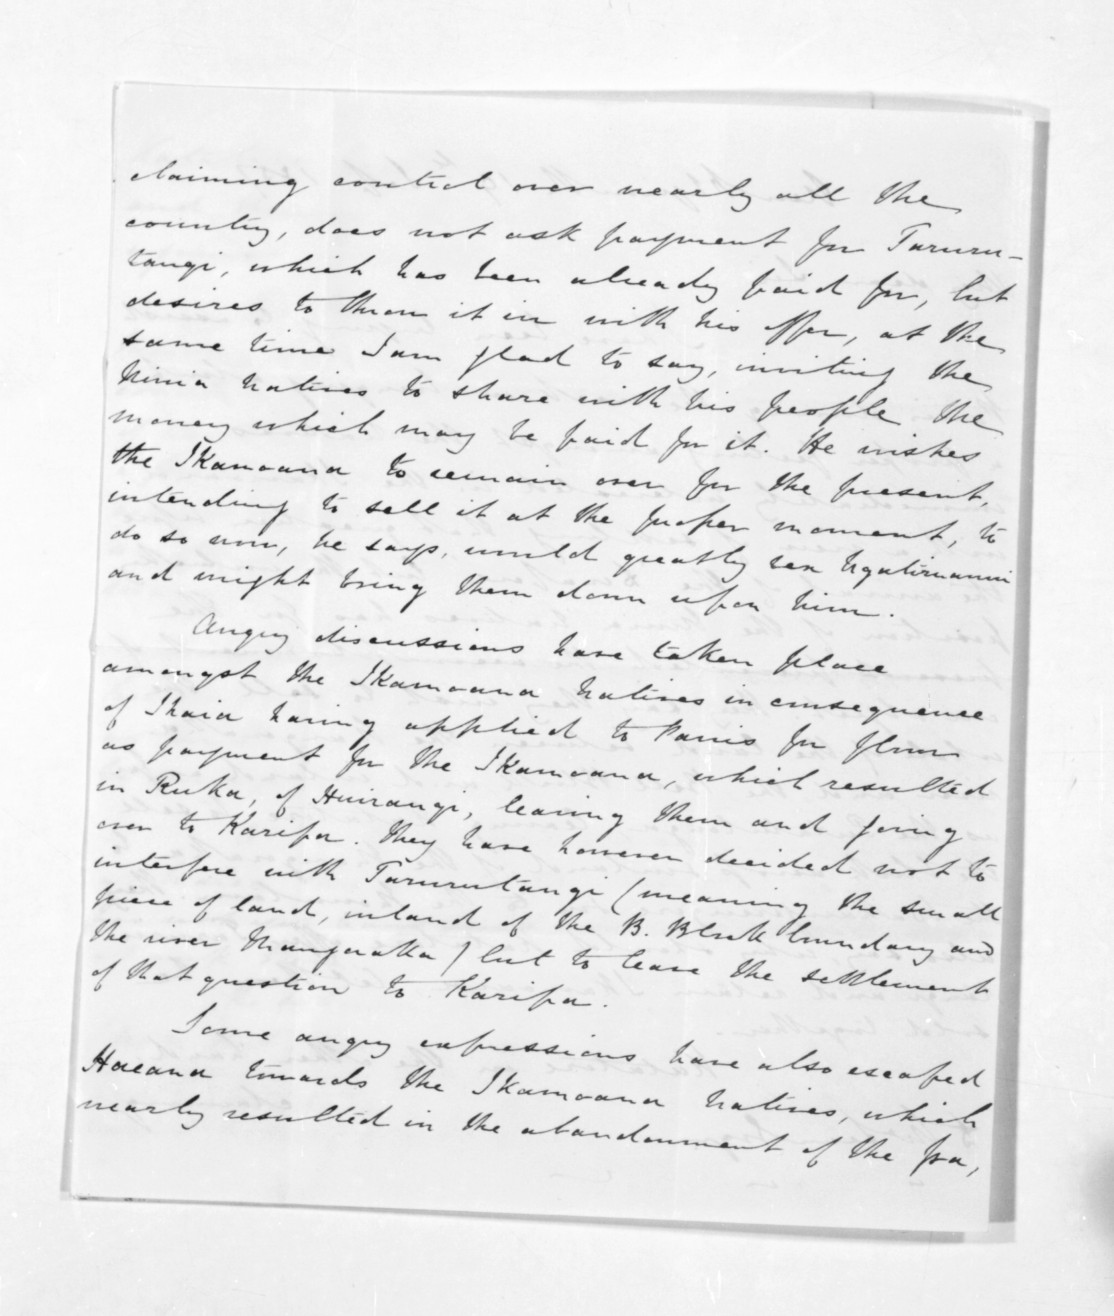 claiming control over nearly all the
country, does not ask payment for Taruru-
tangi, which has been already paid for, but
desires to throw it in with his offer, at the
same time I am glad to say, inviting the
Ninia natives to share with his people the
money which may be paid for it. He wishes
the Ikamoana to remain over for the present,
intending to sell it at the proper moment, to
do so now, he says, would greatly vex Ngatiruanui
and might bring them down upon him.
Angry discussions have taken place
amongst the Ikamoana Natives in consequence
of Ihaia having applied to Parris for flour
as payment for the Ikamoana, which resulted
in Ruka, of Huirangi, leaving them and going
over to Karipa. They have however decided not to
interfere with Tarurutangi (meaning the small
piece of land, inland of the B. Block boundary and
the river Mangoraka) but to leave the settlement
of that question to Karipa.
Some angry expressions have also escaped
towards the Ikamoana Natives, which
nearly resulted in the abandonment of the pa,